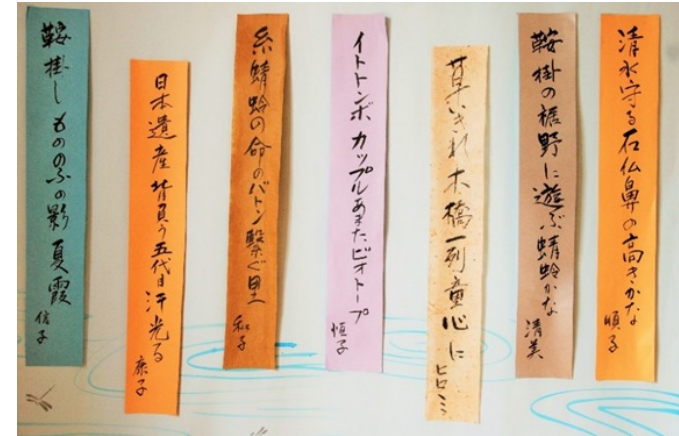 清水守る石仏鼻の高きかな
順子
鞍掛の裾野に遊ぶ蜻蛉かな
清美
草いきれ木橋一列童心に
ヒロミ
イトトンボカップルあまたビオトープ
恒子
糸蜻蛉の命のバトン繋ぐ里
和子
日本遺産背負う五代目汗光る
康子
鞍掛しもののふの影夏霞
信子